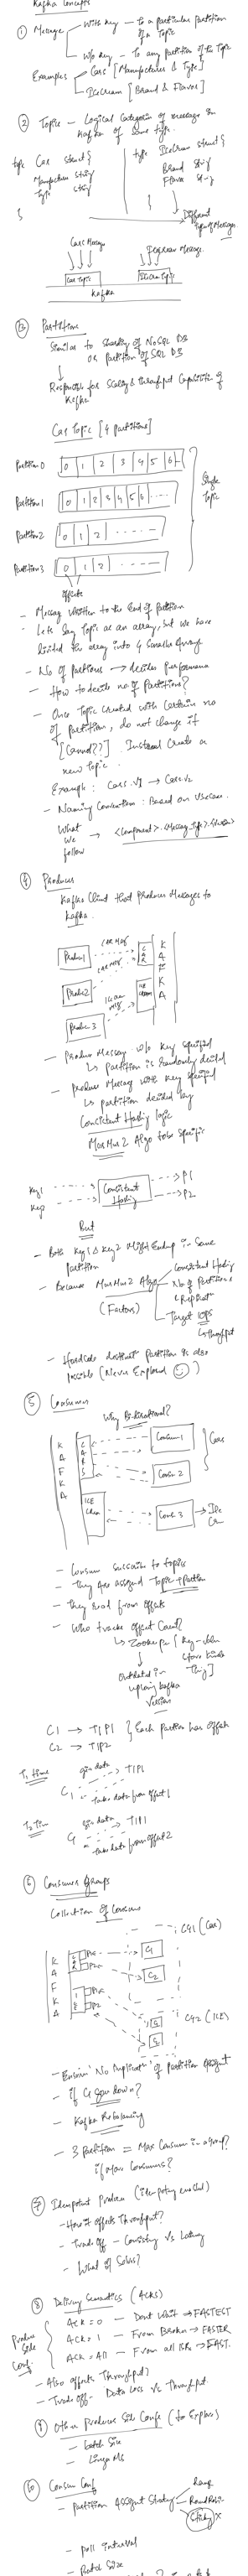 Kafka Concepts
① Message
With key - To a particular partition of a Topic
W/o key - To any partition of the Topic
Examples
Cars [Manufacturer & Type]
IceCream [Brand & Flavor]
② Topics - Logical Categories of message in Kafka of same type.
type Car struct {
Manufacturer string
Type string
}
type IceCream struct {
Brand string
Flavor string
}
Different Types of Messages
Cars Message
IceCream Message
Car Topic
IceCream Topic
Kafka
③ Partitions
Similar to sharding of NoSQL DB
or partition of SQL DB
Responsible for Scaling & throughput Capabilities of Kafka
Car Topic [4 partitions]
Partition 0
0 1 2 3 4 5 6
Partition 1
0 1 2 3 4 5 6 . . .
Partition 2
0 1 2 - - - -
Partition 3
0 1 2 - - - -
Single Topic
offsets
- Message written to the End of Partition
- Lets Say Topic as an array, but we have divided the array into 4 Smaller
- No of Partitions → decides performance
- How to decide no of Partitions?
- Once Topic Created with Certain no of partition, do not change it
[Cannot??]. Instead Create a new Topic.
Example: Cars.V1 → Cars.V2
- Naming Convention: Based on Usecase.
What we follow → <Component>.<Message_Type>.<Version>
④ Producer
Kafka Client that Produces Messages to Kafka.
Produc1
Produc2
Produc3
CAR MSG
CAR MSG
CAR
ICE CREAM
KAFKA
- Produce Message w/o Key specified
↳ partition is Randomly decided
- Produce Message with key specified
↳ partition decided by
Consistent Hashing logic
MurMur2 Algo to be Specific
Key1
Key2
Consistent Hashing
→ P1
→ P2
But
- Both Key1 & Key2 Might Endup in Same partition
- Because MurMur2 Algo
(Factors)
Consistent Hashing
No of Partitions
Target IOPS
↳ Throughput
- Hardcode destination partition is also possible (Never Explored ☺)
⑤ Consumer
Why Bidirectional?
KAFKA
CARS
ICE CREAM
Consum1
Consum 2
Cons. 3
Cars
Ice Cr
- Consum subscribe to topics
- They are assigned Topic + partition
- They Read from offsets
- Who tracks offset Count?
↳ Zookeeper [Key-value Store kinda Thing]
Outdated in upcoming kafka Version
C1 → T1P1
C2 → T1P2
} Each partition has offset
T1 time
C1
give data → T1P1
take data from offset 1
T2 Time
C1
give data → T1P1
take data from offset 2
⑥ Consumer Groups
Collection of Consumer
KAFKA
CAR
ICE
P1
P2
P1
P2
C1
C2
CG1 (Car)
CG2 (ICE)
- Ensures "No Duplicate" of partition Assignment
- if C1 goes down?
- Kafka Rebalancing
- 3 Partition = Max Consum in a group?
if more Consumers?
⑦ Idempotent Producer (idempotency enabled)
- How it affects Throughput?
- Trade Off - Consistency Vs Latency
- What it Solves?
⑧ Delivery Semantics (ACKs)
Producer Side Config.
ACK = 0 - Dont Wait → FASTEST
ACK = 1 - From Broker → FASTER
ACK = All - From all ISRs → FAST.
- Also affects Throughput?
- Trade Off - Data Loss Vs Throughput
⑨ Other Producer Side Config (to Explore)
- batch Size
- Linger Ms
⑩ Consum Conf
- Partition Assignment Strategy
Range
RoundRobin
Sticky
- poll interval
- Batch Size